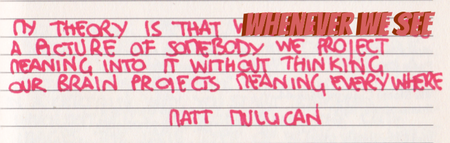 MY THEORY IS THAT WHENEVER WE SEE
A PICTURE OF SOMEBODY WE PROJECT
MEANING INTO IT WITHOUT THINKING
OUR BRAIN PROJECTS MEANING EVERYWHERE
MATT MULLICAN